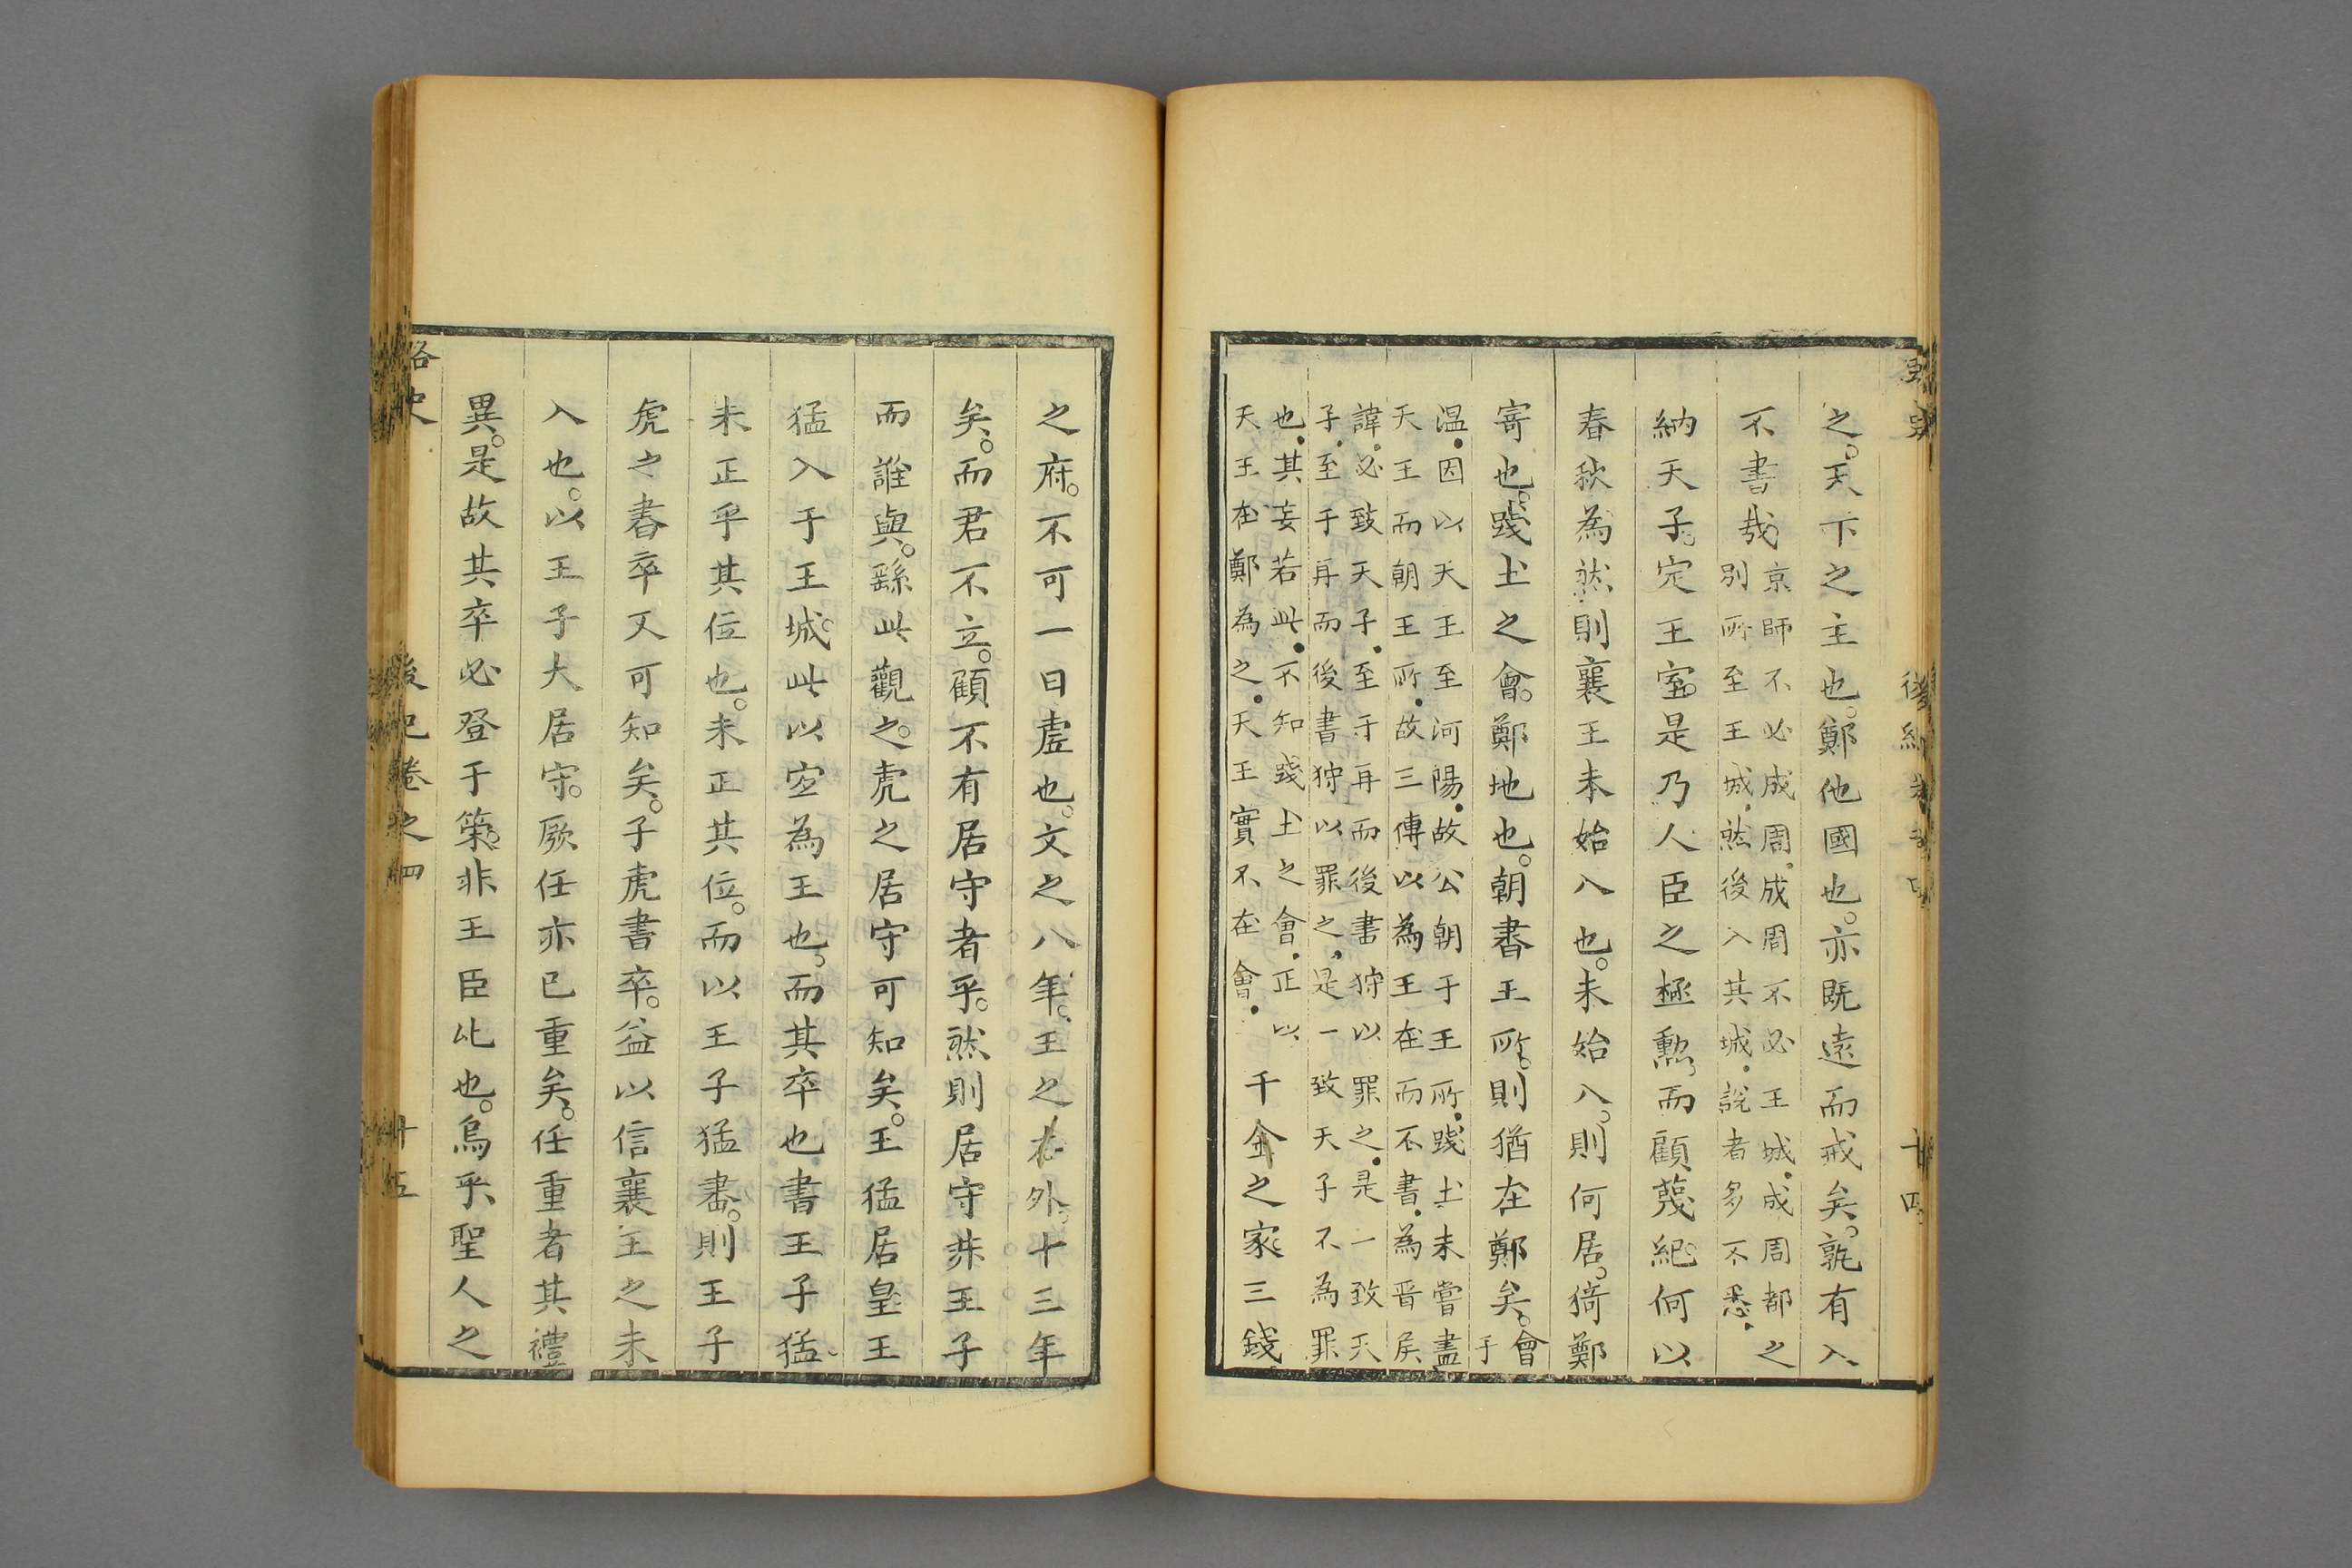 之天下之主也鄭他國也亦既遠而戒矣孰有入
不書哉京師不必成周成周不必王城成周都之
別所至王城然後入其城説者多不悉
納天子定王室是乃人臣之極勲而顧蔑紀何以
春秋為然則襄王未始入也未始入則何居猗鄭
寄也踐土之會鄭地也朝書王所則猶在鄭矣會
于
温因以天王至河陽故公朝于王所踐土未嘗盡
天王而朝王所故三傳以為王在而不書為晉侯
諱必致天子至于再而後書狩以罪之是一致天
子至于再而後書狩以罪之是一致天子不為罪
也其妄若此不知踐土之會正以
天王在鄭為之天王實不在會
千金之家三錢
後紀
十四
之府不可一日虛也文之八年王之在外十三年
矣而君不立顧不有居守者乎然則居守非王子
而誰與繇此觀之虎之居守可知矣王猛居皇王
猛入于王城此以空為王也而其卒也書王子猛
未正乎其位也未正其位而以王子猛書則王子
虎之書卒又可知矣子虎書卒益以信襄王之未
入也以王子大居守厥任亦已重矣任重者其禮
異是故其卒必登于策非王臣比也烏乎聖人之
路史
後紀卷之四
卅五